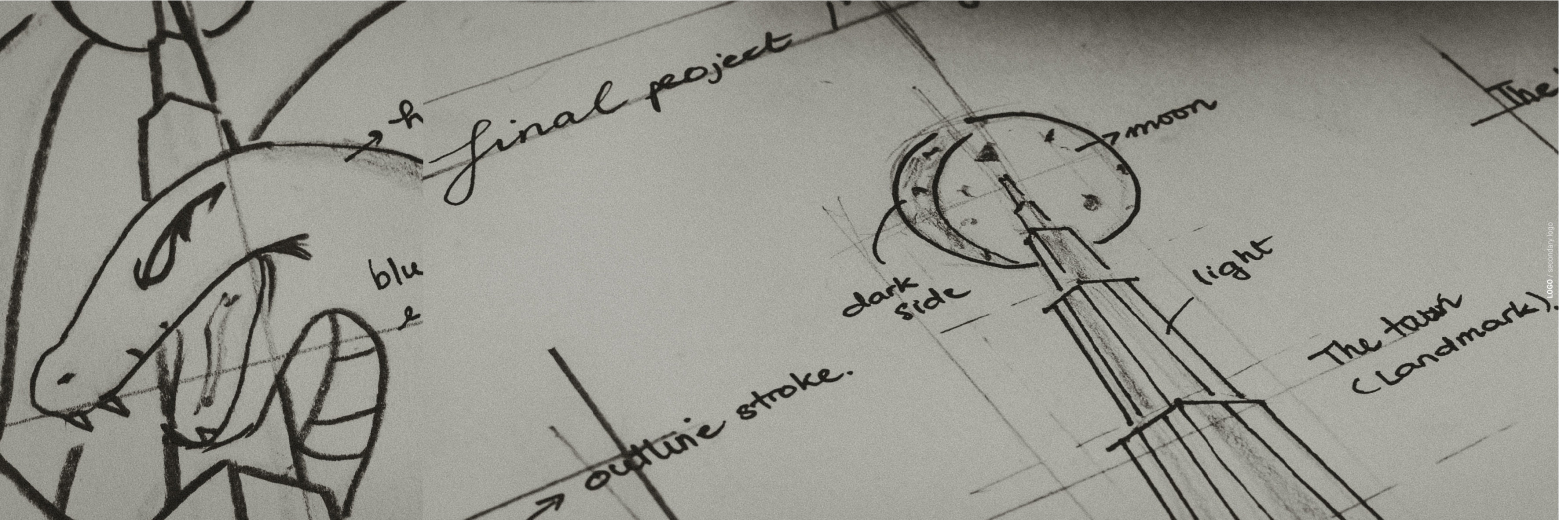 final project
moon
dark
side
light
The
(Landmark).
outline stroke.
blu
e
h
The
LOGO / secondary logo